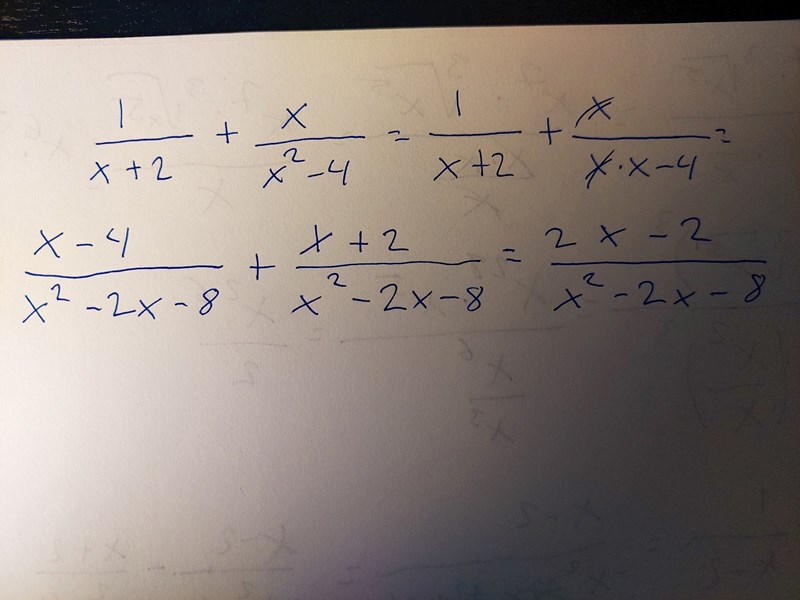 1/(x+2) + x/(x²-4) = 1/(x+2) + x/(x·x-4) =
(x-4)/(x²-2x-8) + (x+2)/(x²-2x-8) = (2x-2)/(x²-2x-8)